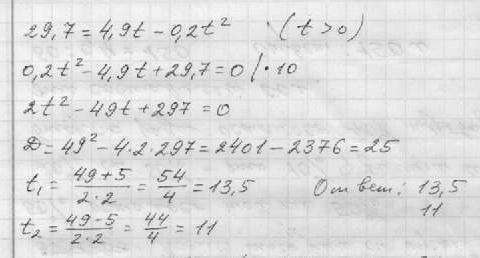 29,7 = 4,9t - 0,2t² (t > 0)
0,2t² - 4,9t + 29,7 = 0 / · 10
2t² - 49t + 297 = 0
D = 49² - 4·2·297 = 2401 - 2376 = 25
t₁ = (49+5)/(2·2) = 54/4 = 13,5 Ответ: 13,5
t₂ = (49-5)/(2·2) = 44/4 = 11 11